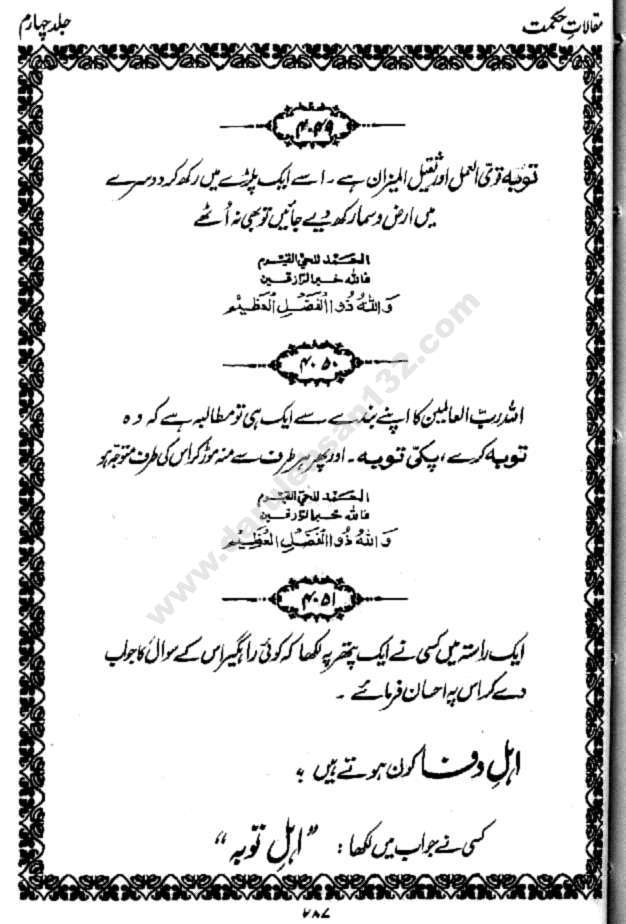 مقالاتِ حکمت
جلد چہارم
۴۰۴۹
توبہ قوی العمل اور ثقیل المیزان ہے۔ اسے ایک پلڑے میں رکھ کر دوسرے
میں ارض و سما رکھ دیے جائیں تو بھی نہ اُٹھے
الحمد للحی القیوم
فاللہ خیر الرازقین
وَاللّٰهُ ذُوالْفَضْلِ الْعَظِيْمِ
۴۰۵۰
اللہ ربّ العالمین کا اپنے بندے سے ایک ہی تو مطالبہ ہے کہ وہ
توبہ کرے، پکّی توبہ۔ اور پھر ہر طرف سے منہ موڑ کر اس کی طرف متوجّہ ہو
الحمد للحی القیوم
فاللہ خیر الرازقین
وَاللّٰهُ ذُوالْفَضْلِ الْعَظِيْمِ
۴۰۵۱
ایک راستہ میں کسی نے ایک پتھر پہ لکھا کہ کوئی راہگیر اس کے سوال کا جواب
دے کر اس پہ احسان فرمائے۔
اہلِ وفا کون ہوتے ہیں ؟
کسی نے جواب میں لکھا: ”اہلِ توبہ“
۷۸۷
www.darulehsan132.com